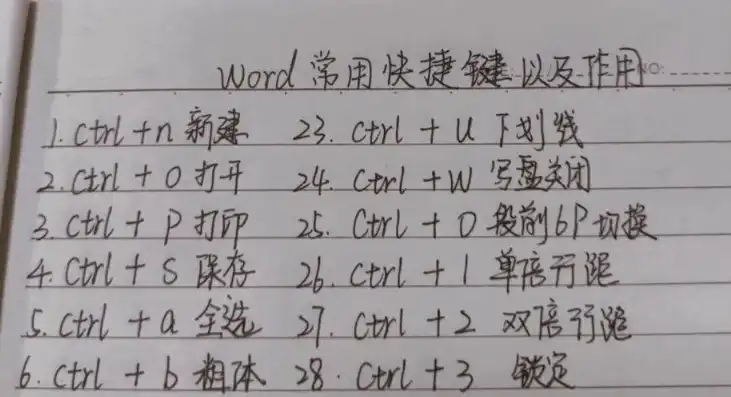 Word常用快捷键以及作用 NO:
1. Ctrl+n 新建 23. Ctrl + U 下划线
2. Ctrl + O 打开 24. Ctrl + W 写盘关闭
3. Ctrl + P 打印 25. Ctrl + 0 段前6P切换
4. Ctrl + S 保存 26. Ctrl + 1 单倍行距
5. Ctrl + a 全选 27. Ctrl + 2 双倍行距
6. Ctrl + b 粗体 28. Ctrl + 3 锁定